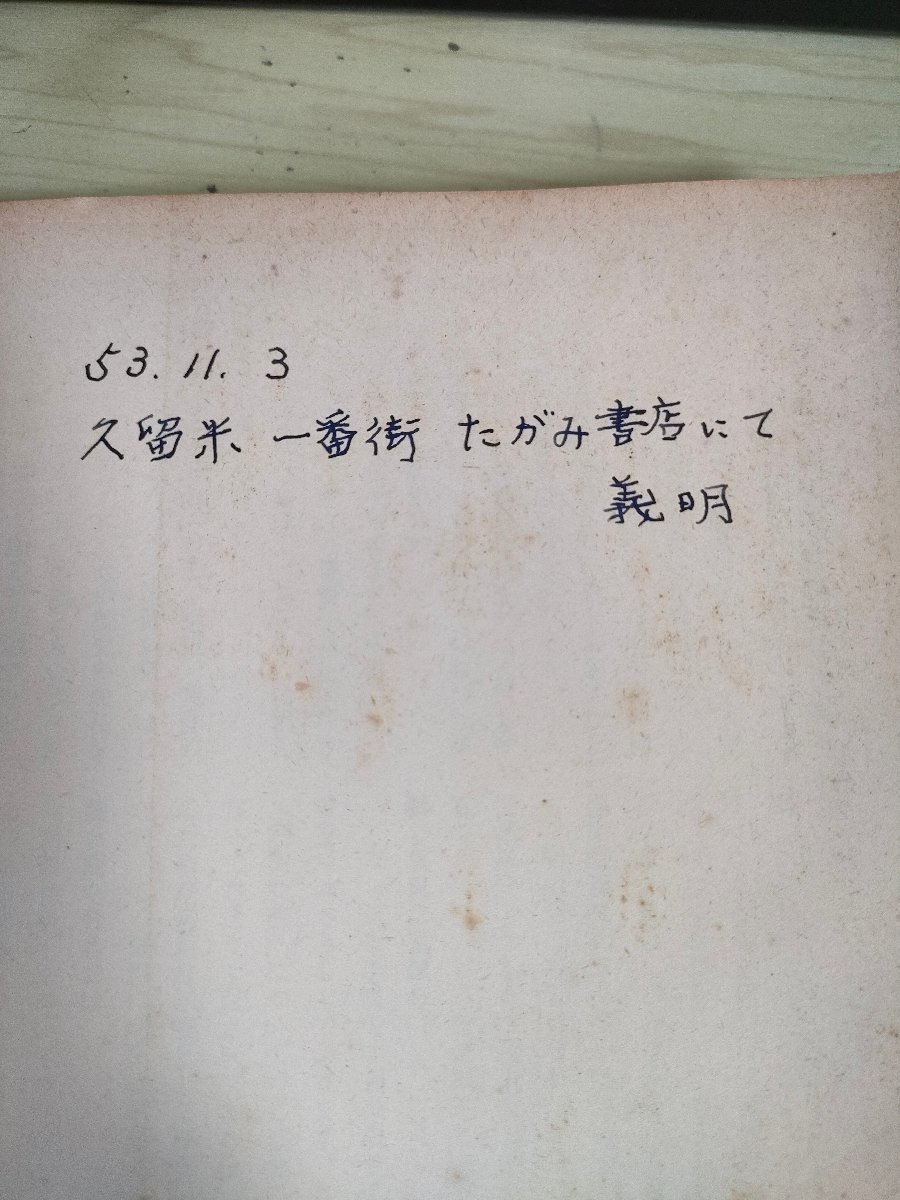 53.11.3
久留米 一番街 たがみ書店にて
義明